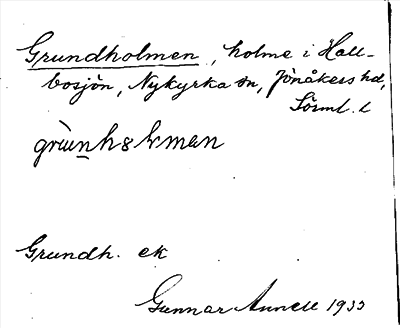 Grundholmen, holme i Hall-
bosjön, Nykyrka sn, Jönåkers hd,
Sörml. l
Grundh. ek
Gunnar Annell 1933